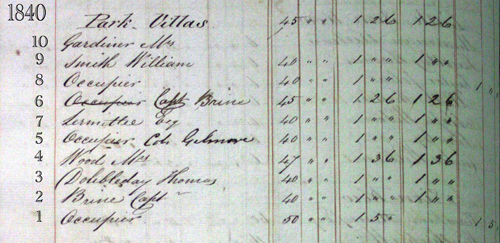 1840
Park Villas 45 " " 1 2 6 1 2 6
10 Gardiner Mrs
9 Smith William 40 " " 1 " " 1 " "
8 Occupier 40 " " 1 " "
6 Occupier Capt Brine 45 " " 1 2 6 1 2 6
7 Esq 40 " " 1 " " 1 " "
5 Occupier Col. Gilmore 40 " " 1 " " 1 " "
4 Wood Mrs 47 " " 1 3 6 1 3 6
3 Doubleday Thomas 40 " " 1 " " 1 " "
2 Brine Capt 40 " " 1 " " 1 " "
1 Occupier 50 " " 1 5 "